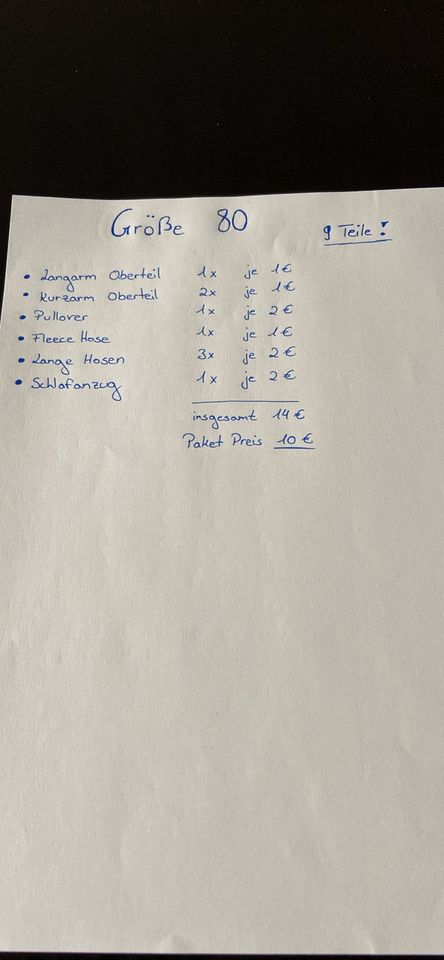 Größe 80
9 Teile!
• Langarm Oberteil 1x je 1€
• Kurzarm Oberteil 2x je 1€
• Pullover 1x je 2€
• Fleece Hose 1x je 1€
• Lange Hosen 3x je 2€
• Schlafanzug 1x je 2€
insgesamt 14€
Paket Preis 10€